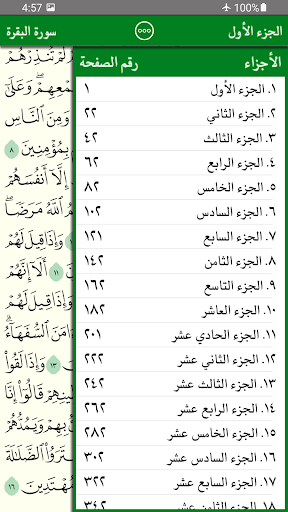 4:57 100%
الجزء الأول سورة البقرة
الأجزاء رقم الصفحة
١. الجزء الأول ١
٢. الجزء الثاني ٢٢
٣. الجزء الثالث ٤٢
٤. الجزء الرابع ٦٢
٥. الجزء الخامس ٨٢
٦. الجزء السادس ١٠٢
٧. الجزء السابع ١٢١
٨. الجزء الثامن ١٤٢
٩. الجزء التاسع ١٦٢
١٠. الجزء العاشر ١٨٢
١١. الجزء الحادي عشر ٢٠١
١٢. الجزء الثاني عشر ٢٢٢
١٣. الجزء الثالث عشر ٢٤٢
١٤. الجزء الرابع عشر ٢٦٢
١٥. الجزء الخامس عشر ٢٨٢
١٦. الجزء السادس عشر ٣٠٢
١٧. الجزء السابع عشر ٣٢٢
١٨. الجزء الثامن عشر ٣٤٢
لَمْ تُنذِرْهُمْ
سَمْعِهِمْ ۖ وَعَلَىٰ
وَمِنَ النَّاسِ
بِمُؤْمِنِينَ ٨
إِلَّا أَنفُسَهُمْ
هُمُ اللَّهُ مَرَضًا ۖ
وَإِذَا قِيلَ لَهُمْ
١١ أَلَا إِنَّهُمْ
وَإِذَا قِيلَ لَهُمْ
ءَامَنَ السُّفَهَاءُ ۗ
١٣ وَإِذَا لَقُوا
شَيَاطِينِهِمْ قَالُوا إِنَّا
بِهِمْ وَيَمُدُّهُمْ
اشْتَرَوُا الضَّلَالَةَ
مُهْتَدِينَ ١٦